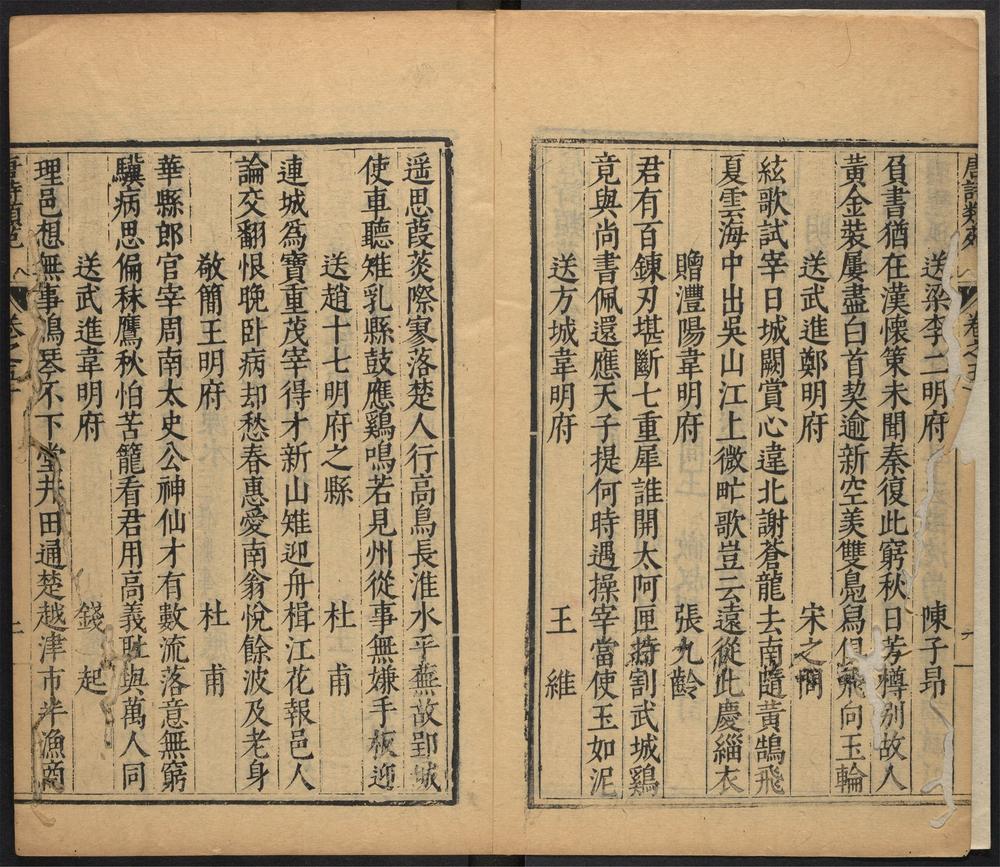 唐詩類苑 卷之五十
送梁李二明府 陳子昂
負書猶在漢懷策未聞秦復此窮秋日芳樽別故人
黃金裝屢盡白首契逾新空羡雙鳧舄俱飛向玉輪
送武進鄭明府 宋之問
絃歌試宰日城闕賞心違北謝蒼龍去南隨黃鵠飛
夏雲海中出吳山江上微甿歌豈云遠從此慶緇衣
贈澧陽韋明府 張九齡
君有百鍊刃堪斷七重犀誰開太阿匣持割武城鷄
竟與尚書佩還應天子提何時遇操宰當使玉如泥
送方城韋明府 王維
遥思葭菼際寥落楚人行高鳥長淮水平蕪故郢城
使車聽雉乳縣鼓應鷄鳴若見州從事無嫌手板迎
送趙十七明府之縣 杜甫
連城為寶重茂宰得才新山雉迎舟楫江花報邑人
論交翻恨晚卧病却愁春惠愛南翁悅餘波及老身
敬簡王明府 杜甫
華縣郎官宰周南太史公神仙才有數流落意無窮
驥病思偏秣鷹秋怕苦籠看君用高義耻與萬人同
送武進韋明府 錢起
理邑想無事鳴琴不下堂井田通楚越津市半漁商
唐詩類苑